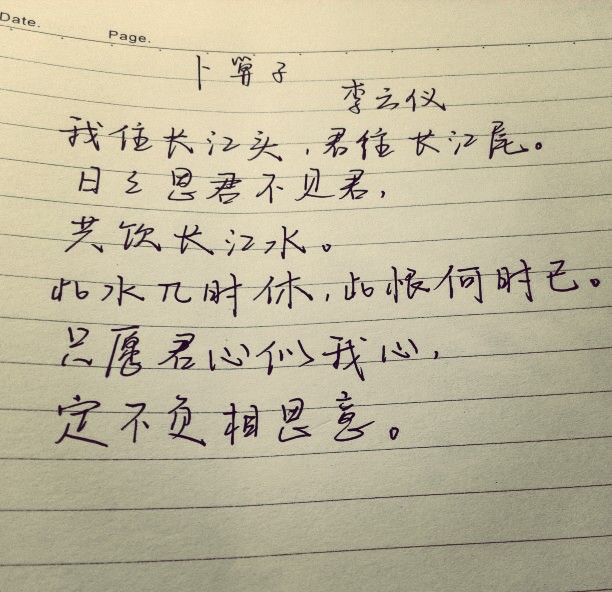 Date.
Page.
卜算子
李云仪
我住长江头，君住长江尾。
日々思君不见君，
共饮长江水。
此水几时休，此恨何时已。
只愿君心似我心，
定不负相思意。